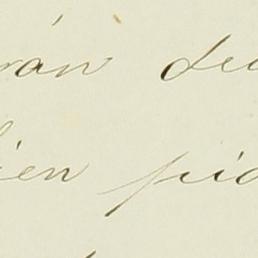 rán de
ien pid